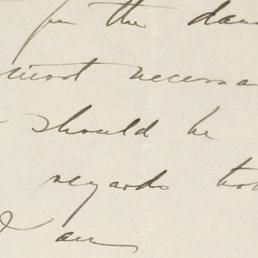 for the dan
most necessa
should be
regards to
I am